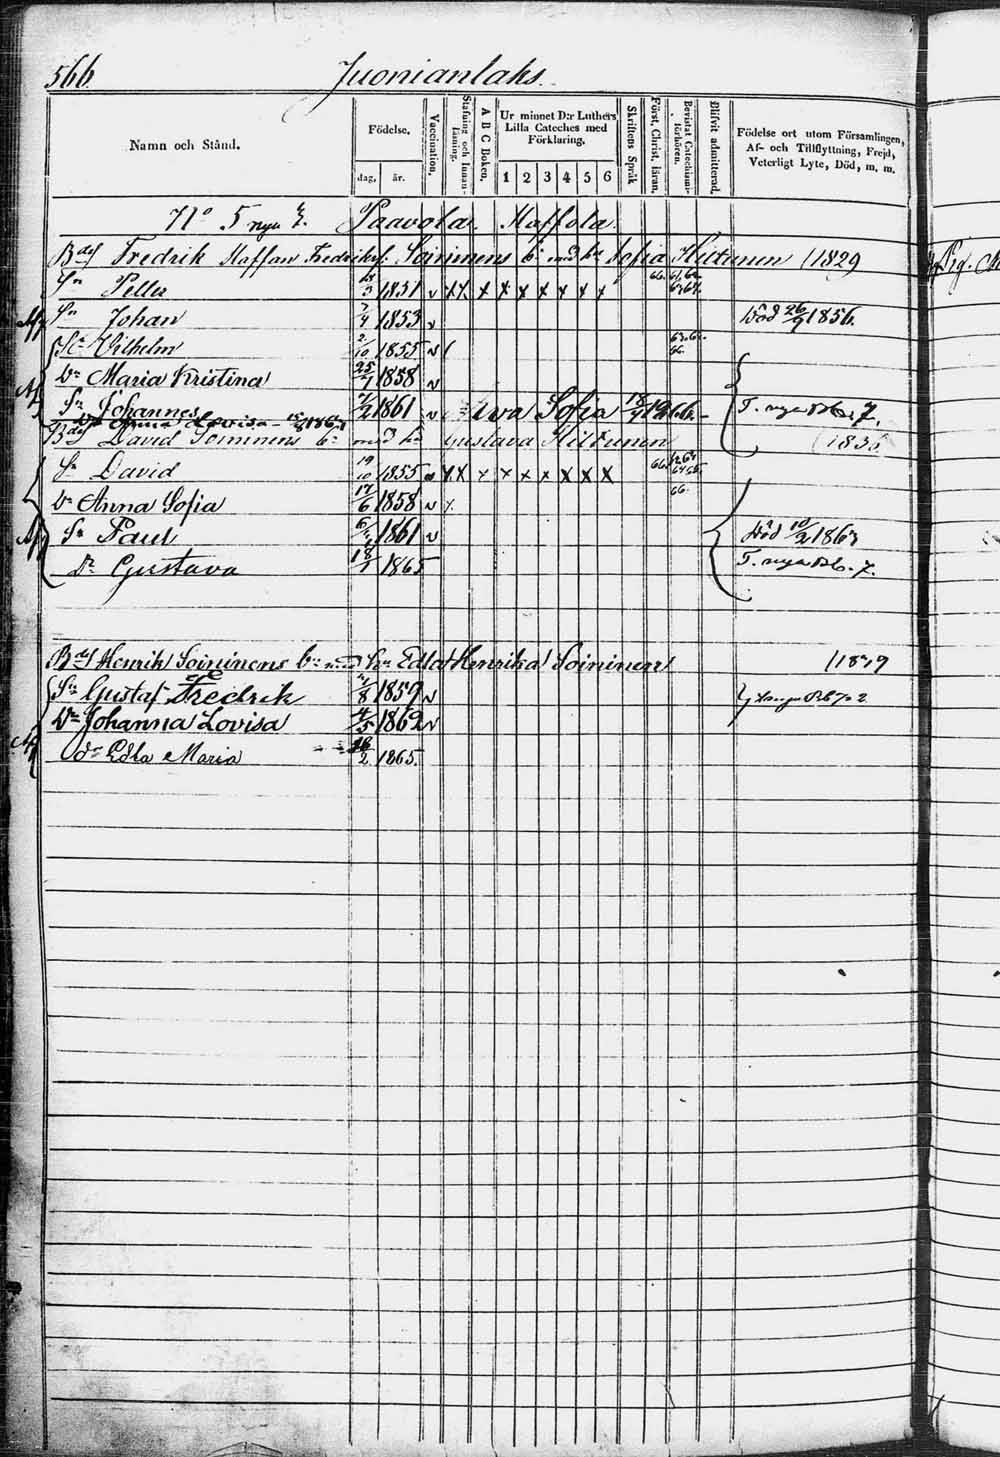 566.
Juonianlaks.
Namn och Stånd.
Födelse.
dag. år.
Vaccination.
Stafning och Innan-läsning.
A B C Boken.
Ur minnet D:r Luthers Lilla Cateches med Förklaring.
1 2 3 4 5 6
Skriftens Språk
Först. Christ. läran.
Bevistat Catechismi-förhören.
Blifvit admitterad.
Födelse ort utom Församlingen, Af- och Tillflyttning, Frejd, Veterligt Lyte, Död, m. m.
No 5 nya 7. Paavola. Maffola.
Fredrik Soininens bn med hu Sofia Hiltunen (1829
Sn Petter 3 1851 v x x x x x x x x x 66.
Sn Johan 7/4 1853 v Död 26/9 1856.
Sn Vilhelm 2/10 1855 v 66.
Dr Maria Kristina 25/7 1858 v
Sn Johannes 7/2 1861 v Eva Sofia 18/9 1866. T. nya Rb. 7.
Dr Anna Lovisa
David Soininens bn med hu Gustava Hiltunen (1836
Sn David 19/10 1855 x x x x x x x x x 66.
Dr Anna Sofia 17/6 1858 v x 66.
Sn Paul 1861 v Död 10/2 1863
Dr Gustava 18/1 1865 T. nya Rb. 7.
Henrik Soininens bn med hu Edla Henrika Soininen
Sn Gustaf Fredrik /8 1859 v
Dr Johanna Lovisa 4/5 1862 v
dr Edla Maria /2 1865.